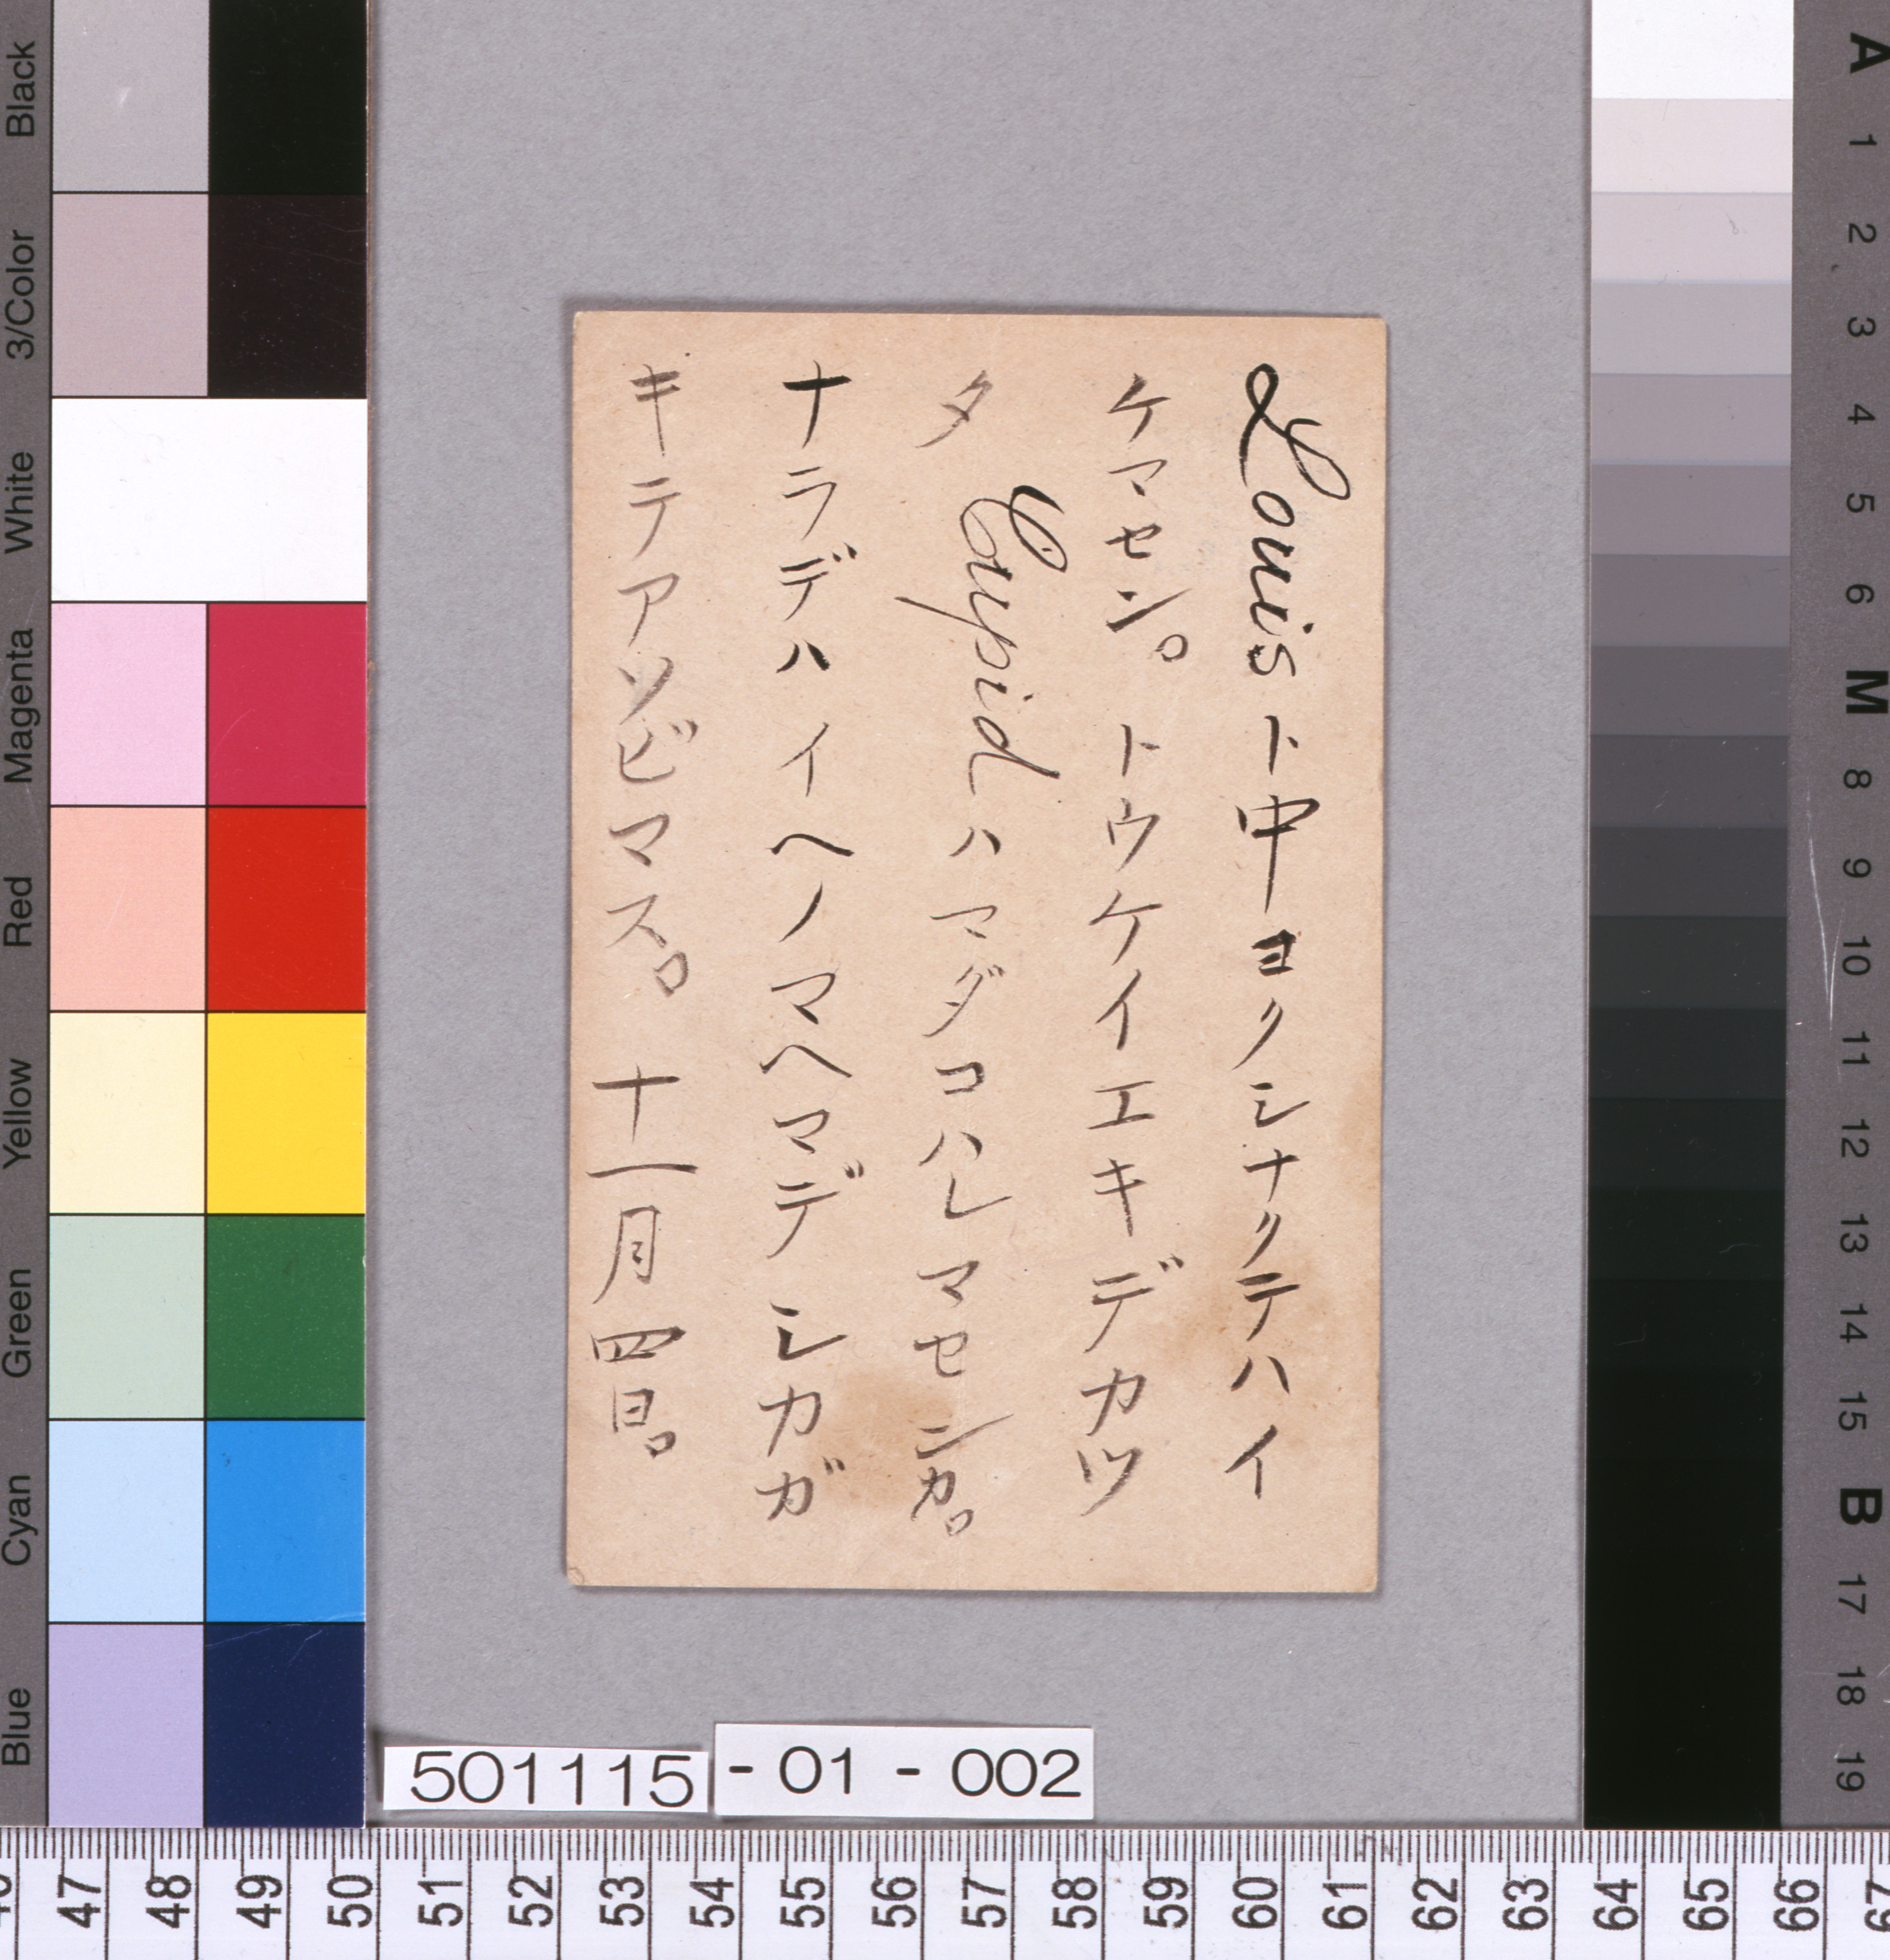 Louisト中ヨクシナクテハイ
ケマセン。トウケイエキデカツ
タ Cupidハマダコハレマセンカ。
ナラデハイヘノマヘマデシカガ
キテアソビマス。十一月四日。
501115 - 01 - 002
Black
3/Color
White
Magenta
Red
Yellow
Green
Cyan
Blue
A 1 2 3 4 5 6 M 8 9 10 11 12 13 14 15 B 17 18 19
47 48 49 50 51 52 53 54 55 56 57 58 59 60 61 62 63 64 65 66 67